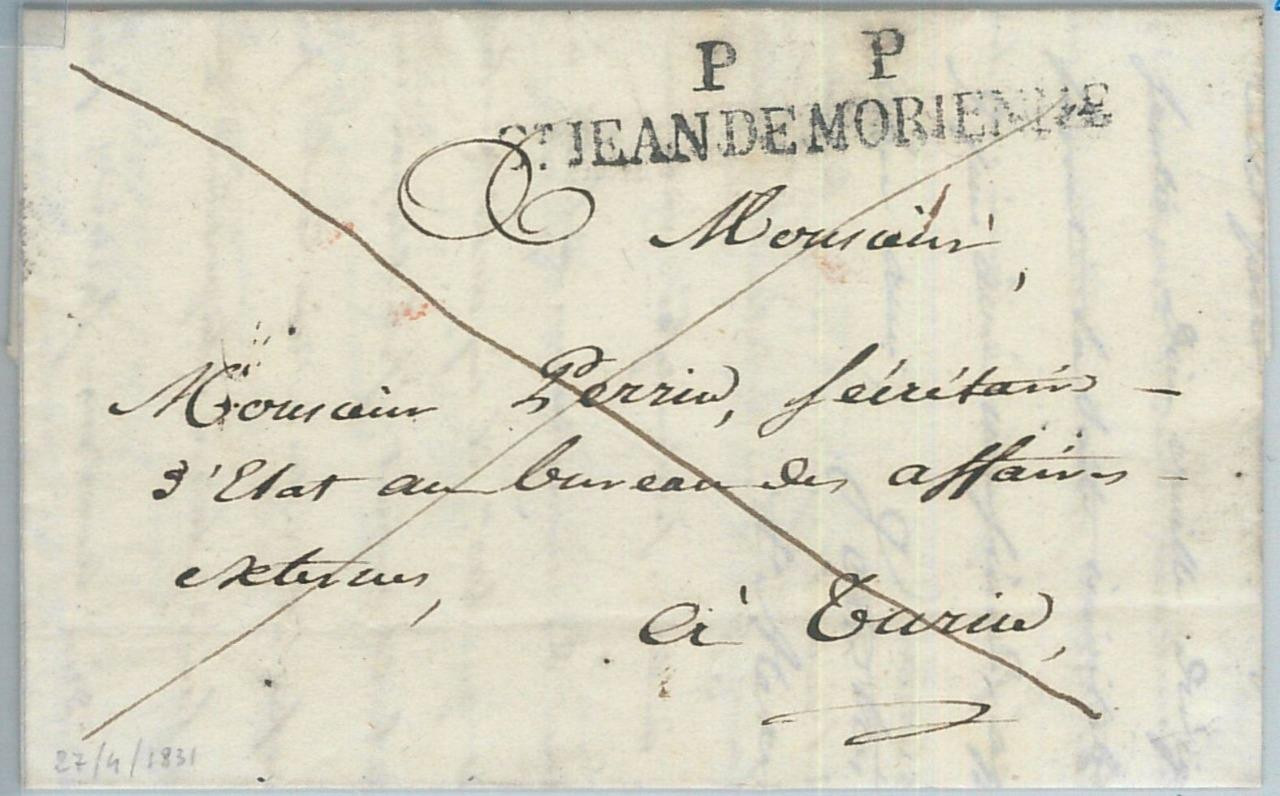 P P
ST JEAN DE MORIENNE
Monsieur,
Monsieur Perrin, secrétaire
d'Etat au bureau des affaires
externes,
à Turin,
27/4/1831